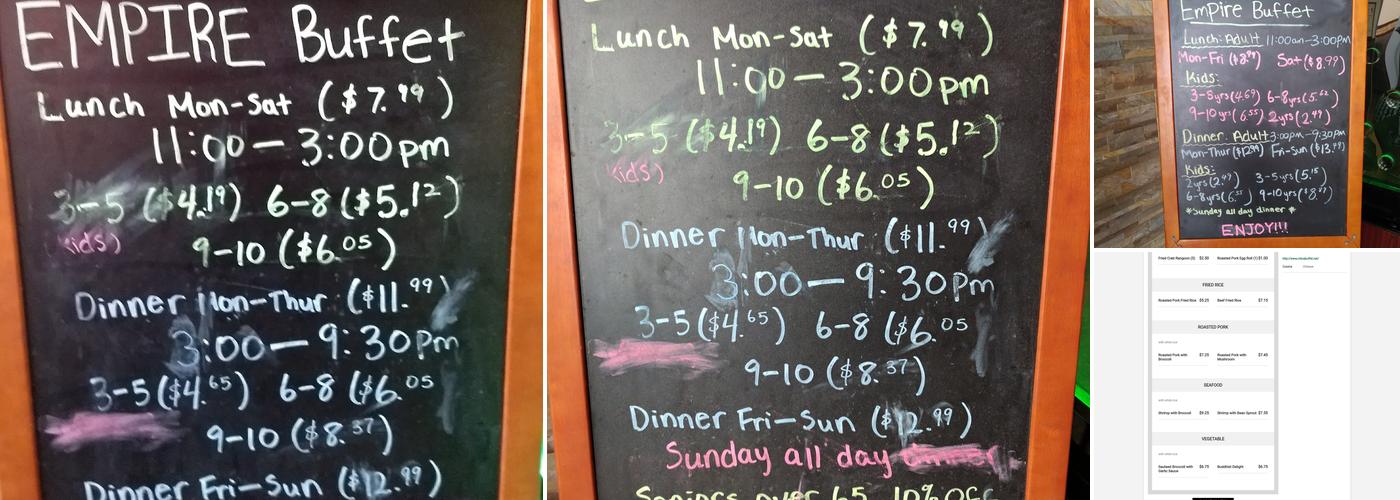 EMPIRE Buffet
Lunch Mon-Sat ($7.99)
11:00 — 3:00pm
3-5 ($4.19) 6-8 ($5.12)
kids)
9-10 ($6.05)
Dinner Mon-Thur ($11.99)
3:00 — 9:30pm
3-5 ($4.65) 6-8 ($6.05
9-10 ($8.37)
Dinner Fri-Sun ($12.99)
Lunch Mon-Sat ($7.99)
11:00 — 3:00pm
3-5 ($4.19) 6-8 ($5.12)
kids)
9-10 ($6.05)
Dinner Mon-Thur ($11.99)
3:00 — 9:30pm
3-5 ($4.65) 6-8 ($6.05
9-10 ($8.37)
Dinner Fri-Sun ($12.99)
Sunday all day dinner
Seniors over 65 10% OFF
EmPire Buffet
Lunch: Adult 11:00am-3:00pm
Mon-Fri ($8.99) Sat ($8.99)
Kids:
3-5yrs (4.69) 6-8yrs (5.62)
9-10yrs (6.55) 2yrs (2.49)
Dinner: Adult 3:00pm-9:30pm
Mon-Thur ($12.99) Fri-Sun ($13.99)
Kids:
2yrs (2.49) 3-5yrs (5.15)
6-8yrs (6.55) 9-10yrs ($8.87)
*Sunday all day dinner *
ENJOY!!!
Fried Crab Rangoon (5) $2.50 Roasted Pork Egg Roll (1) $1.00
FRIED RICE
Roasted Pork Fried Rice $5.25 Beef Fried Rice $7.15
ROASTED PORK
with white rice
Roasted Pork with Broccoli $7.25 Roasted Pork with Mushroom $7.45
SEAFOOD
with white rice
Shrimp with Broccoli $9.25 Shrimp with Bean Sprout $7.55
VEGETABLE
with white rice
Sauteed Broccoli with Garlic Sauce $6.75 Buddhist Delight $6.75
Cuisine Chinese